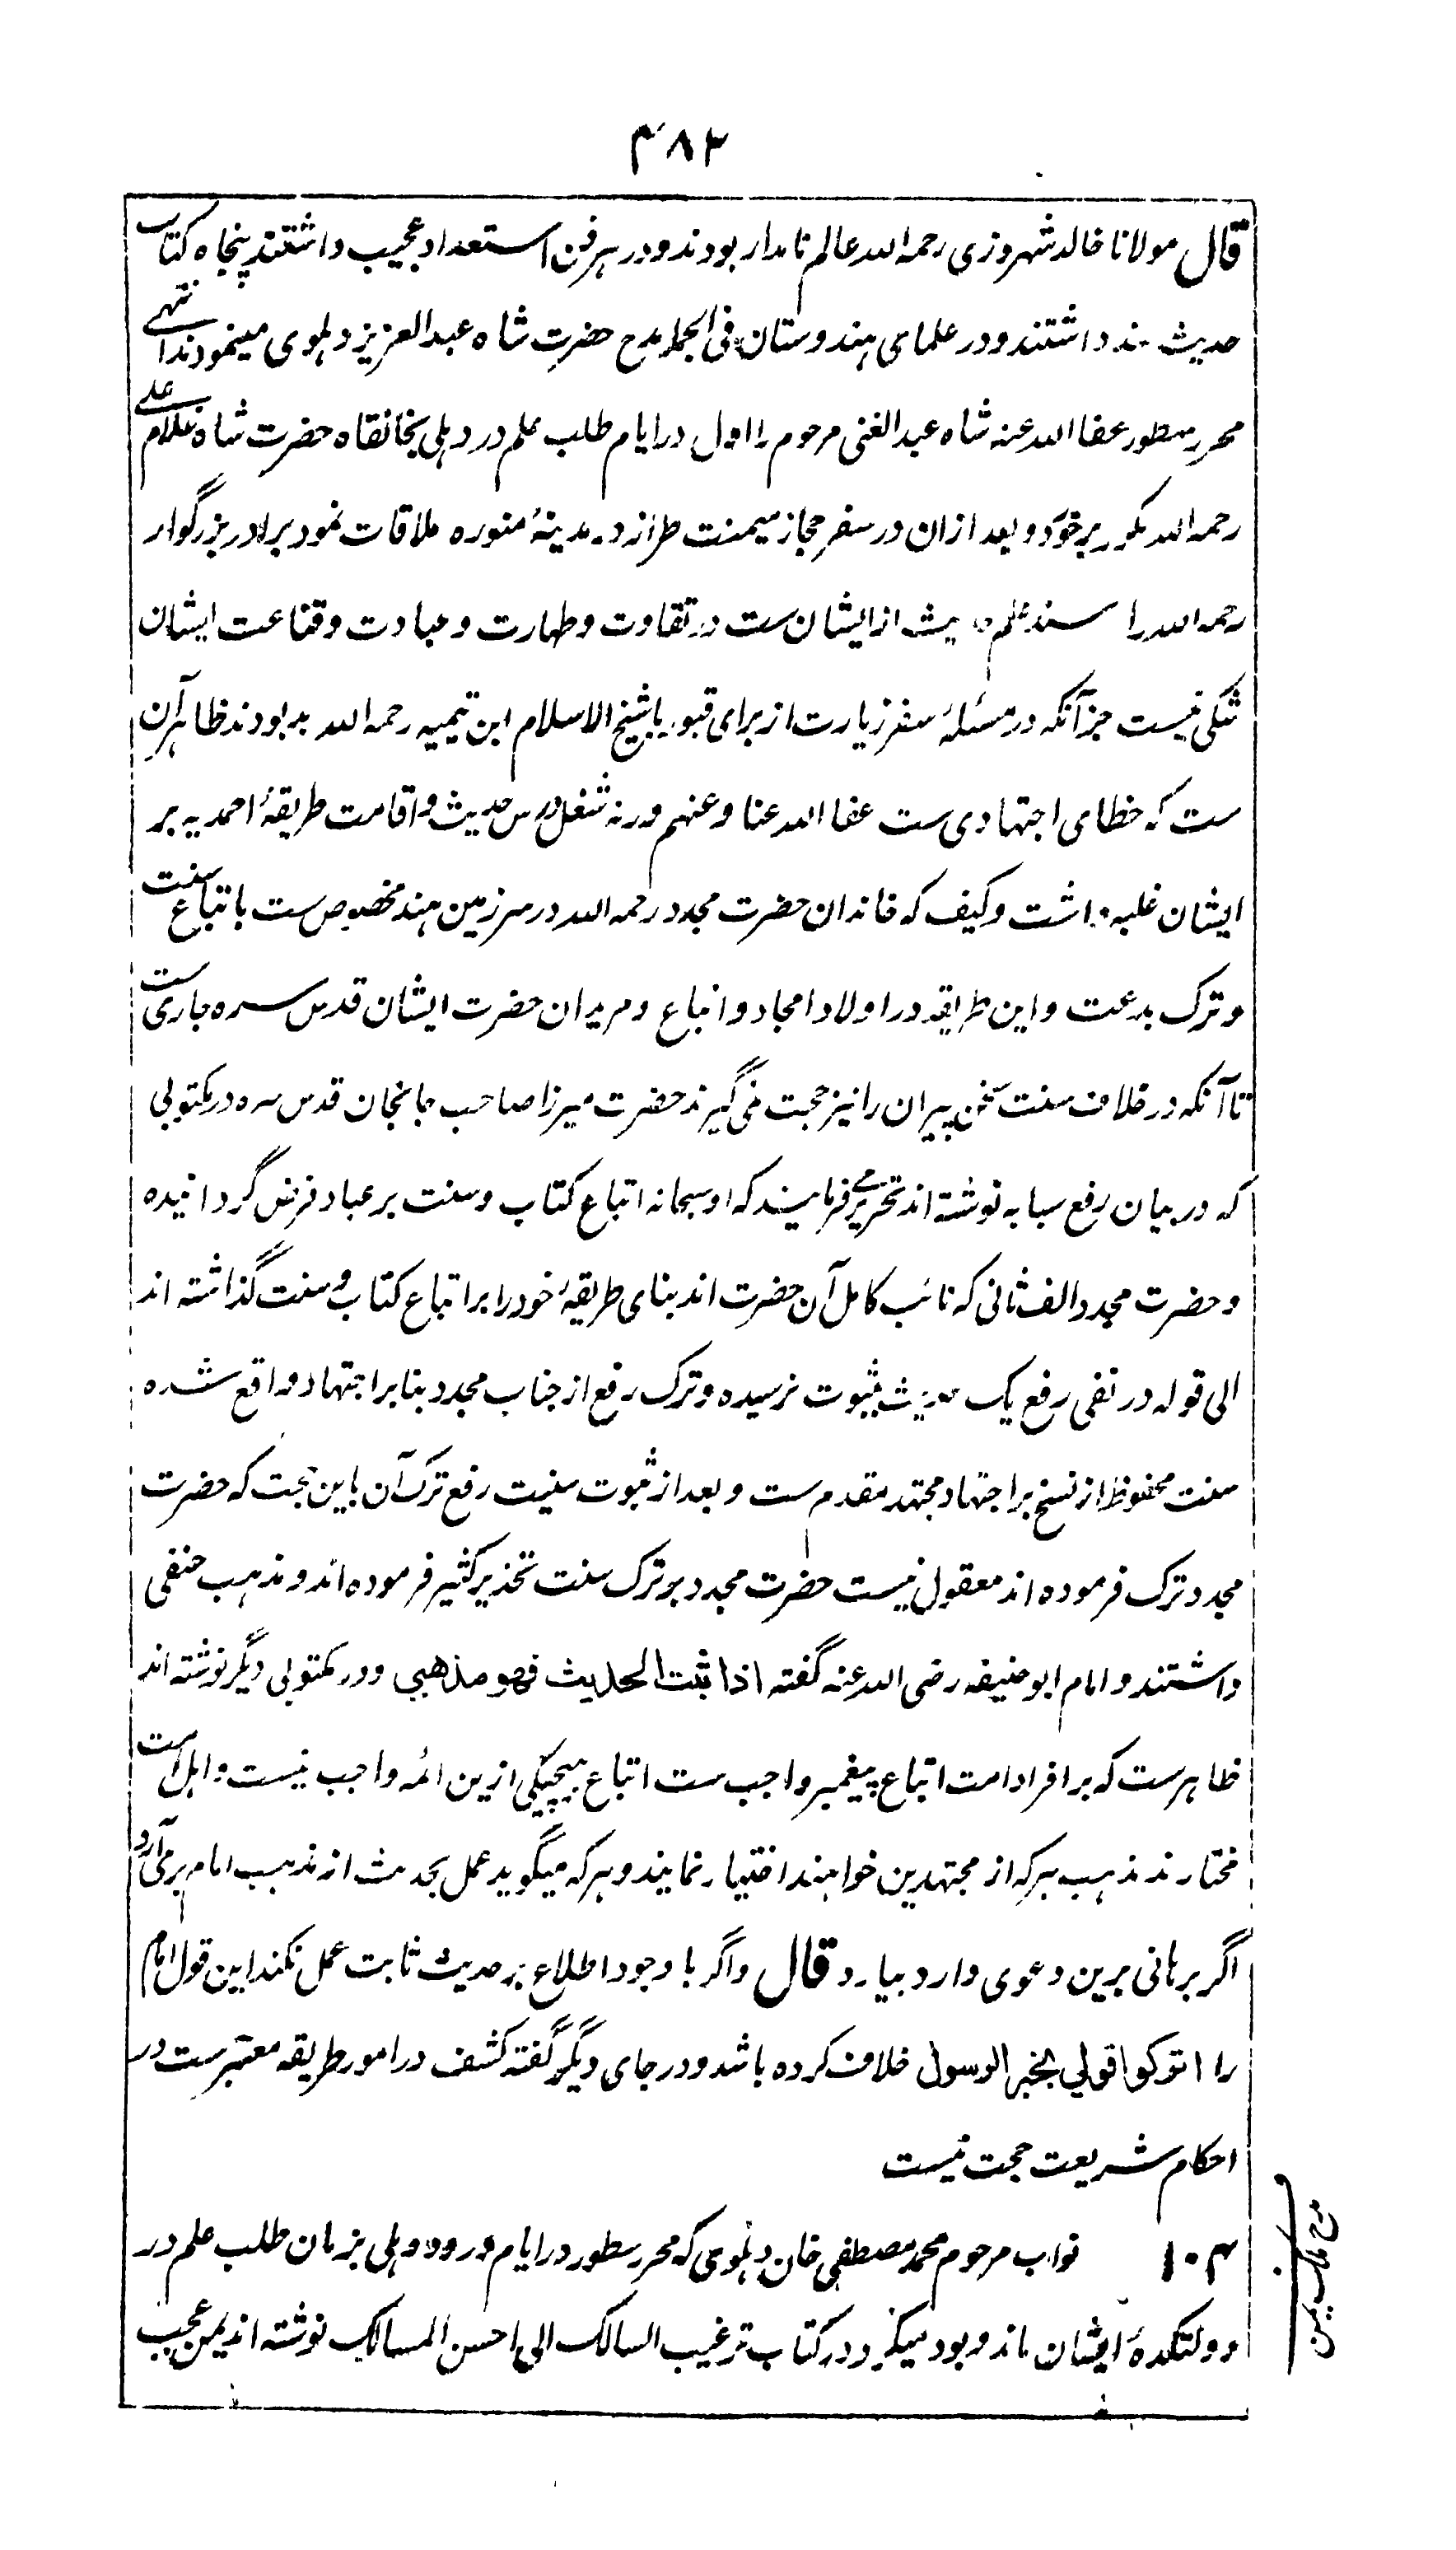 ۴۸۳
قال مولانا خالد شهروزی رحمه الله عالم نامدار بودند و در هر فن استعداد عجیب داشتند پنجاه کتاب
حدیث سند داشتند و در علمای هندوستان فی الجمله مدح حضرت شاه عبدالعزیز دهلوی مینمودند انتهی
محرر سطور عفا الله عنه شاه عبدالغنی مرحوم را اول در ایام طلب علم در دهلی بخانقاه حضرت شاه غلام علی
رحمه الله مکرر برخورد و بعد ازان در سفر حجاز میمنت طراز در مدینهٔ منوره ملاقات نمود برادر بزرگوار
رحمه الله را سند علم حدیث از ایشان ست در تقاوت و طهارت و عبادت و قناعت ایشان
شکی نیست جز آنکه در مسئلهٔ سفر زیارت از برای قبور با شیخ الاسلام ابن تیمیه رحمه الله بد بودند ظاهر آن
ست که خطای اجتهادی ست عفا الله عنا و عنهم ورنه شغل درس حدیث و اقامت طریقهٔ احمدیه بر
ایشان غلبه داشت و کیف که خاندان حضرت مجدد رحمه الله در سرزمین هند مخصوص ست باتباع سنت
و ترک بدعت و این طریقه در اولاد امجاد و اتباع و مریدان حضرت ایشان قدس سره جاری ست
تا آنکه در خلاف سنت سخن پیران را نیز حجت نمی گیرند حضرت میرزا صاحب جانجان قدس سره در مکتوبی
که در بیان رفع سبابه نوشته اند تحریر می فرمایند که او سبحانه اتباع کتاب و سنت بر عباد فرض گردانیده
و حضرت مجدد الف ثانی که نائب کامل آن حضرت اند بنای طریقهٔ خود را بر اتباع کتاب و سنت گذاشته اند
الی قوله در نفی رفع یک حدیث بثبوت نرسیده و ترک رفع از جناب مجدد بنا بر اجتهاد واقع شده
سنت محفوظ از نسخ بر اجتهاد مجتهد مقدم ست و بعد از ثبوت سنیت رفع ترک آن باین حجت که حضرت
مجدد ترک فرموده اند معقول نیست حضرت مجدد بر ترک سنت تحذیر کثیر فرموده اند و مذهب حنفی
داشتند و امام ابوحنیفه رضی الله عنه گفته اذا ثبت الحدیث فهو مذهبی و در مکتوبی دیگر نوشته اند
ظاهرست که بر افراد امت اتباع پیغمبر واجب ست اتباع هیچیکی ازین ائمه واجب نیست و اهل امت
مختارند مذهب هرکه از مجتهدین خواهند اختیار نمایند و هرکه میگوید عمل بحدیث از مذهب امام برمی آرد
اگر برهانی برین دعوی دارد بیارد قال و اگر با وجود اطلاع بر حدیث ثابت عمل نکند این قول امام
را اترکوا قولی بخبر الرسول خلاف کرده باشد و در جای دیگر گفته کشف در امور طریقه معتبرست در
احکام شریعت حجت نیست
۱۰۴ نواب مرحوم محمد مصطفی خان دهلوی که محرر سطور در ایام ورود دهلی بزمان طلب علم در
دولتکدهٔ ایشان مانده بود میگوید در کتاب ترغیب السالک الی احسن المسالک نوشته اند یمن عجب
مدح ملک یمن